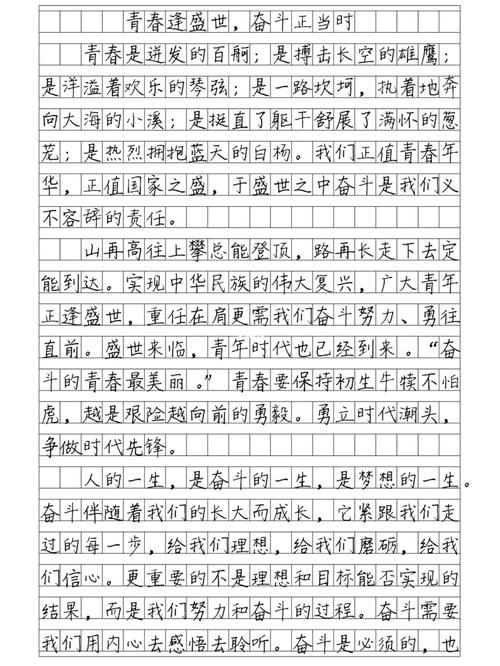 青春逢盛世，奋斗正当时
青春是迸发的百舸；是搏击长空的雄鹰；
是洋溢着欢乐的琴弦；是一路坎坷，执着地奔
向大海的小溪；是挺直了躯干舒展了满怀的葱
茏；是热烈拥抱蓝天的白杨。我们正值青春年
华，正值国家之盛，于盛世之中奋斗是我们义
不容辞的责任。
山再高往上攀总能登顶，路再长走下去定
能到达。实现中华民族的伟大复兴，广大青年
正逢盛世，重任在肩更需我们奋斗努力、勇往
直前。盛世来临，青年时代也已经到来。“奋
斗的青春最美丽。”青春要保持初生牛犊不怕
虎，越是艰险越向前的勇毅。勇立时代潮头，
争做时代先锋。
人的一生，是奋斗的一生，是梦想的一生。
奋斗伴随着我们的长大而成长，它紧跟我们走
过的每一步，给我们理想，给我们磨砺，给我
们信心。更重要的不是理想和目标能否实现的
结果，而是我们努力和奋斗的过程。奋斗需要
我们用内心去感悟去聆听。奋斗是必须的，也